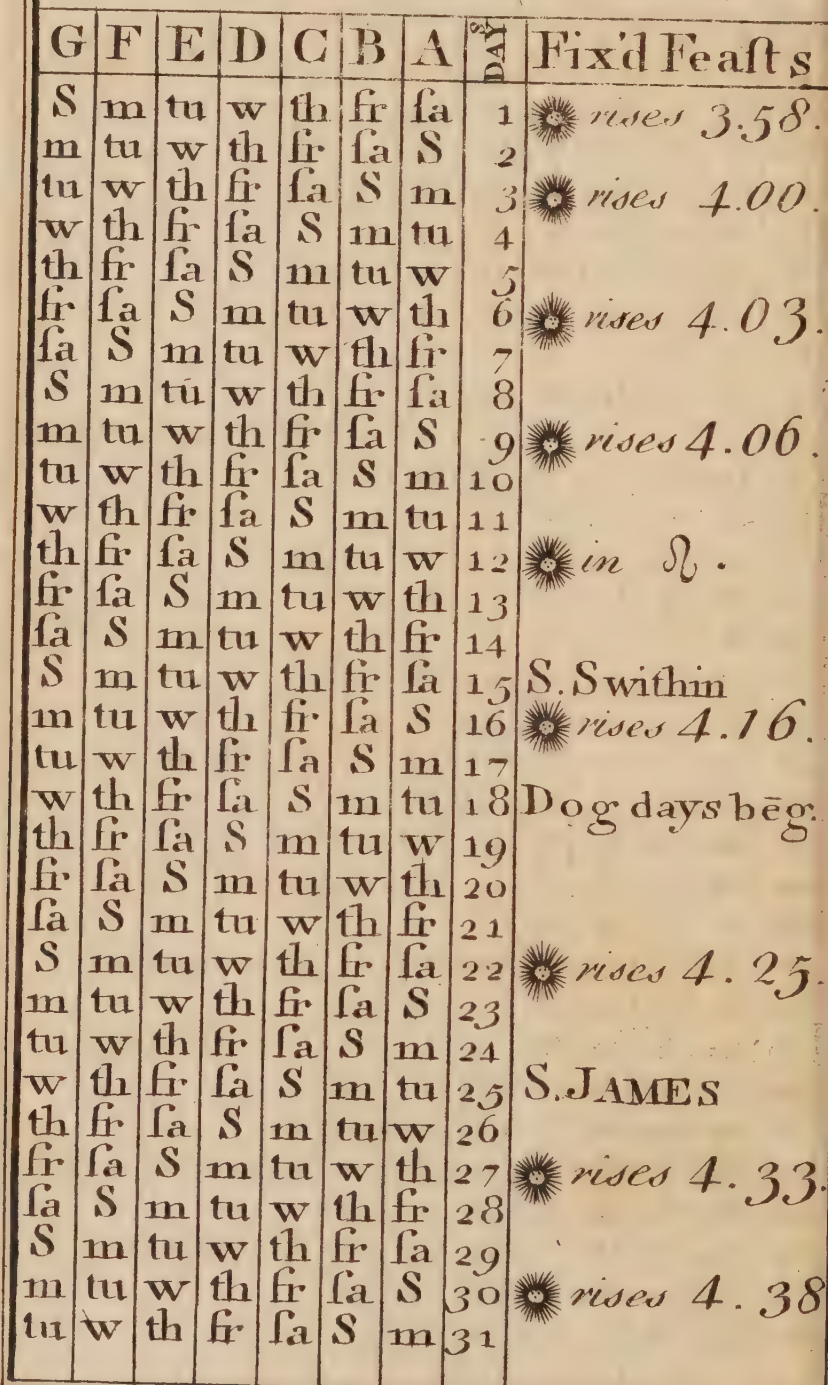 G F E D C B A DAYS Fix'd Feaſts
S m tu w th fr ſa 1 rises 3.58.
m tu w th fr ſa S 2
tu w th fr ſa S m 3 rises 4.00.
w th fr ſa S m tu 4
th fr ſa S m tu w 5
fr ſa S m tu w th 6 rises 4.03.
ſa S m tu w th fr 7
S m tu w th fr ſa 8
m tu w th fr ſa S 9 rises 4.06.
tu w th fr ſa S m 10
w th fr ſa S m tu 11
th fr ſa S m tu w 12 in ♌.
fr ſa S m tu w th 13
ſa S m tu w th fr 14
S m tu w th fr ſa 15 S. Swithin
m tu w th fr ſa S 16 rises 4.16.
tu w th fr ſa S m 17
w th fr ſa S m tu 18 Dog days bēg.
th fr ſa S m tu w 19
fr ſa S m tu w th 20
ſa S m tu w th fr 21
S m tu w th fr ſa 22 rises 4.25.
m tu w th fr ſa S 23
tu w th fr ſa S m 24
w th fr ſa S m tu 25 S. JAMES
th fr ſa S m tu w 26
fr ſa S m tu w th 27 rises 4.33.
ſa S m tu w th fr 28
S m tu w th fr ſa 29
m tu w th fr ſa S 30 rises 4.38
tu w th fr ſa S m 31